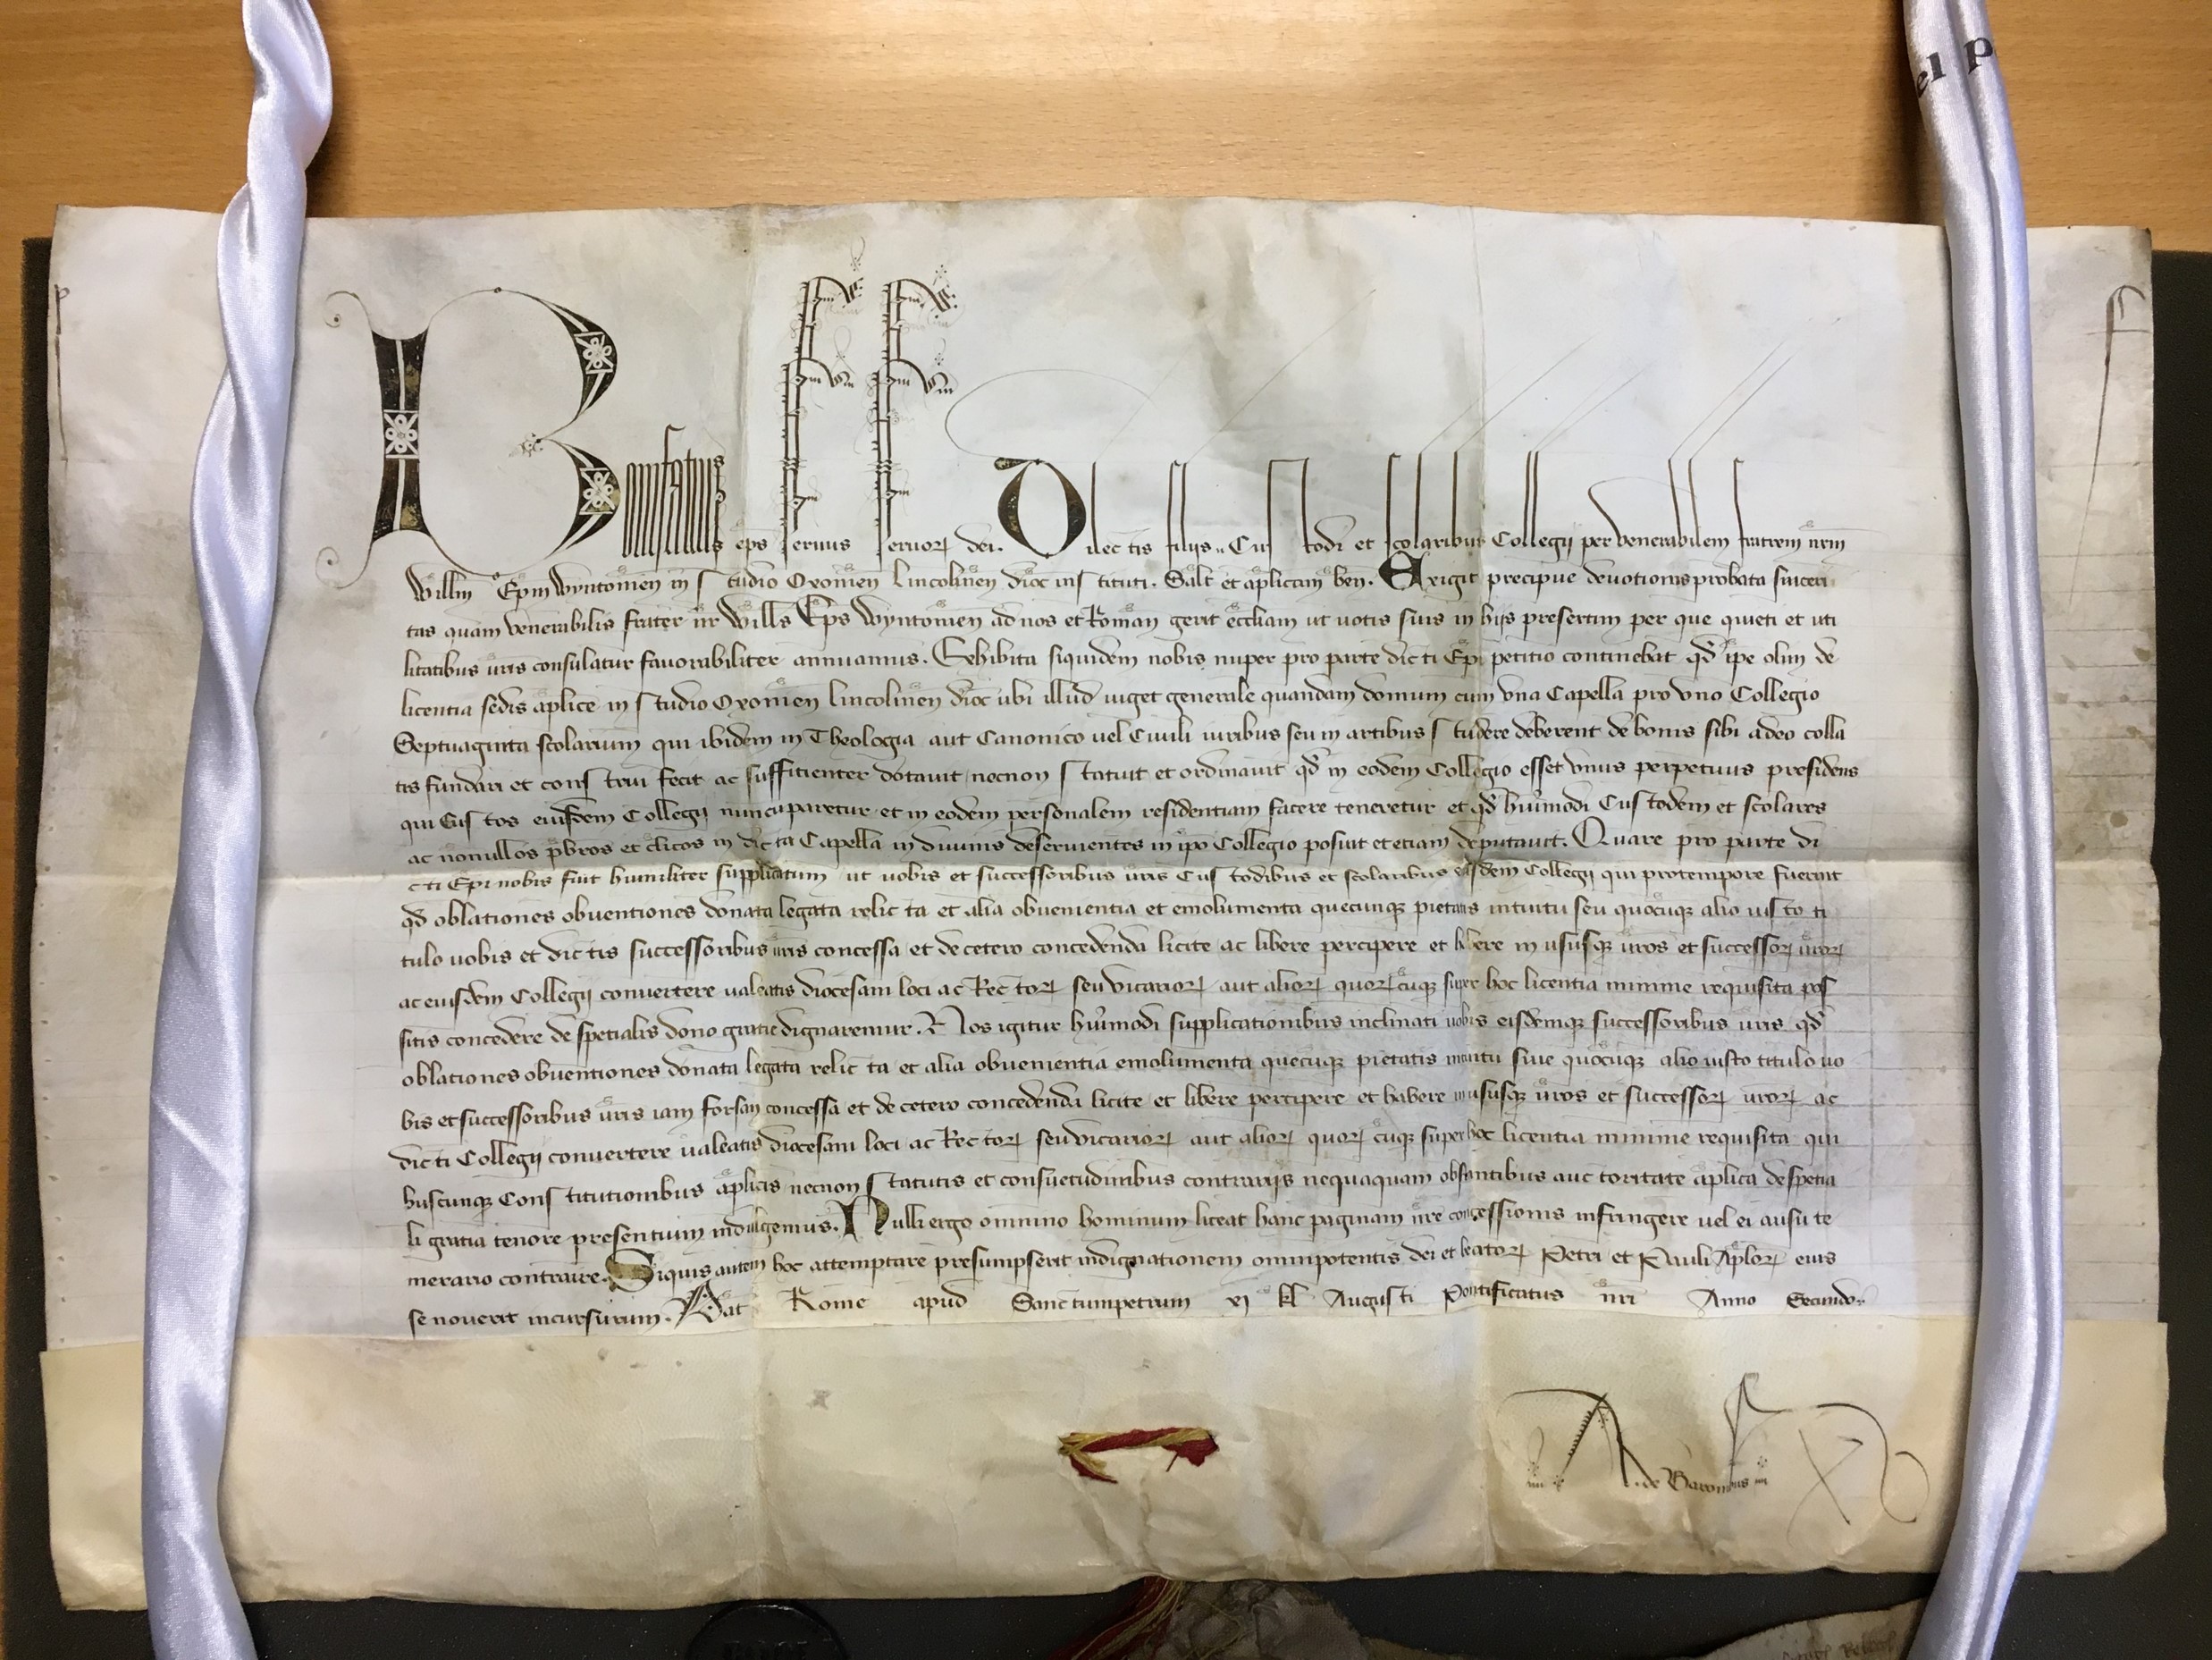 el p
Bonifatius eps seruus seruoꝝ dei. Dilectis filijs .. Custodi et scolaribus Collegij per venerabilem fratrem nrm
Willm Epm Wyntonien in studio Oxonien Lincolinen dioc instituti. Salt et aplicam ben. Exigit precipue deuotionis probata sinceri
tas quam venerabilis frater nr Wills Eps Wyntonien ad nos et Roman gerit eccliam ut uotis suis in hijs presertim per que quieti et uti
litatibus uris consulatur fauorabiliter annuamus. Exhibita siquidem nobis nuper pro parte dicti Epi petitio continebat qd ipe olim de
licentia sedis aplice in studio Oxonien Lincolinen dioc ubi illud uiget generale quandam domum cum vna Capella pro vno Collegio
Septuaginta scolarium qui ibidem in Theologia aut Canonico uel Ciuili iuribus seu in artibus studere deberent de bonis sibi a deo colla
tis fundari et construi fecit ac sufficienter dotauit necnon statuit et ordinauit qd in eodem Collegio esset vnus perpetuus presidens
qui Custos eiusdem Collegij nuncuparetur et in eodem personalem residentiam facere teneretur et qd humodi Custodem et scolares
ac nonullos pbros et clicos in dicta Capella in diuinis deseruientes in ipo Collegio posuit et etiam deputauit. Quare pro parte di
cti Epi nobis fuit humiliter supplicatum ut uobis et successoribus uris Custodibus et scolaribus eiusdem Collegij qui pro tempore fuerint
qd oblationes obuentiones donata legata relicta et alia obuenientia et emolumenta quecunqꝫ pietatis intuitu seu quocuqꝫ alio iusto ti
tulo uobis et dictis successoribus uris concessa et de cetero concedenda licite ac libere percipere et habere in ususqꝫ uros et successoꝝ uroꝝ
ac eiusdem Collegij conuertere ualeatis diocesani loci ac Rectoꝝ seu vicarioꝝ aut alioꝝ quoꝝcuqꝫ super hoc licentia minime requisita pos
sitis concedere de spetialis dono gratie dignaremur. Nos igitur humodi supplicationibus inclinati uobis eisdemqꝫ successoribus uris qd
oblationes obuentiones donata legata relicta et alia obuenientia emolumenta quecuqꝫ pietatis intuitu siue quocuqꝫ alio iusto titulo uo
bis et successoribus uris iam forsan concessa et de cetero concedenda licite et libere percipere et habere in ususqꝫ uros et successoꝝ uroꝝ ac
dicti Collegij conuertere ualeatis diocesani loci ac Rectoꝝ seu vicarioꝝ aut alioꝝ quoꝝcuqꝫ super hoc licentia minime requisita qui
buscunqꝫ Constitutionibus aplicis necnon statutis et consuetudinibus contrarijs nequaquam obstantibus auctoritate aplica de spetia
li gratia tenore presentium indulgemus. Nulli ergo omnino hominum liceat hanc paginam nre concessionis infringere uel ei ausu te
merario contraire. Siquis autem hoc attemptare presumpserit indignationem omnipotentis dei et beatoꝝ Petri et Pauli Aploꝝ eius
se nouerit incursurum. Dat Rome apud Sanctumpetrum xj kl Augusti Pontificatus nri Anno Secundo
A. de Baronibus